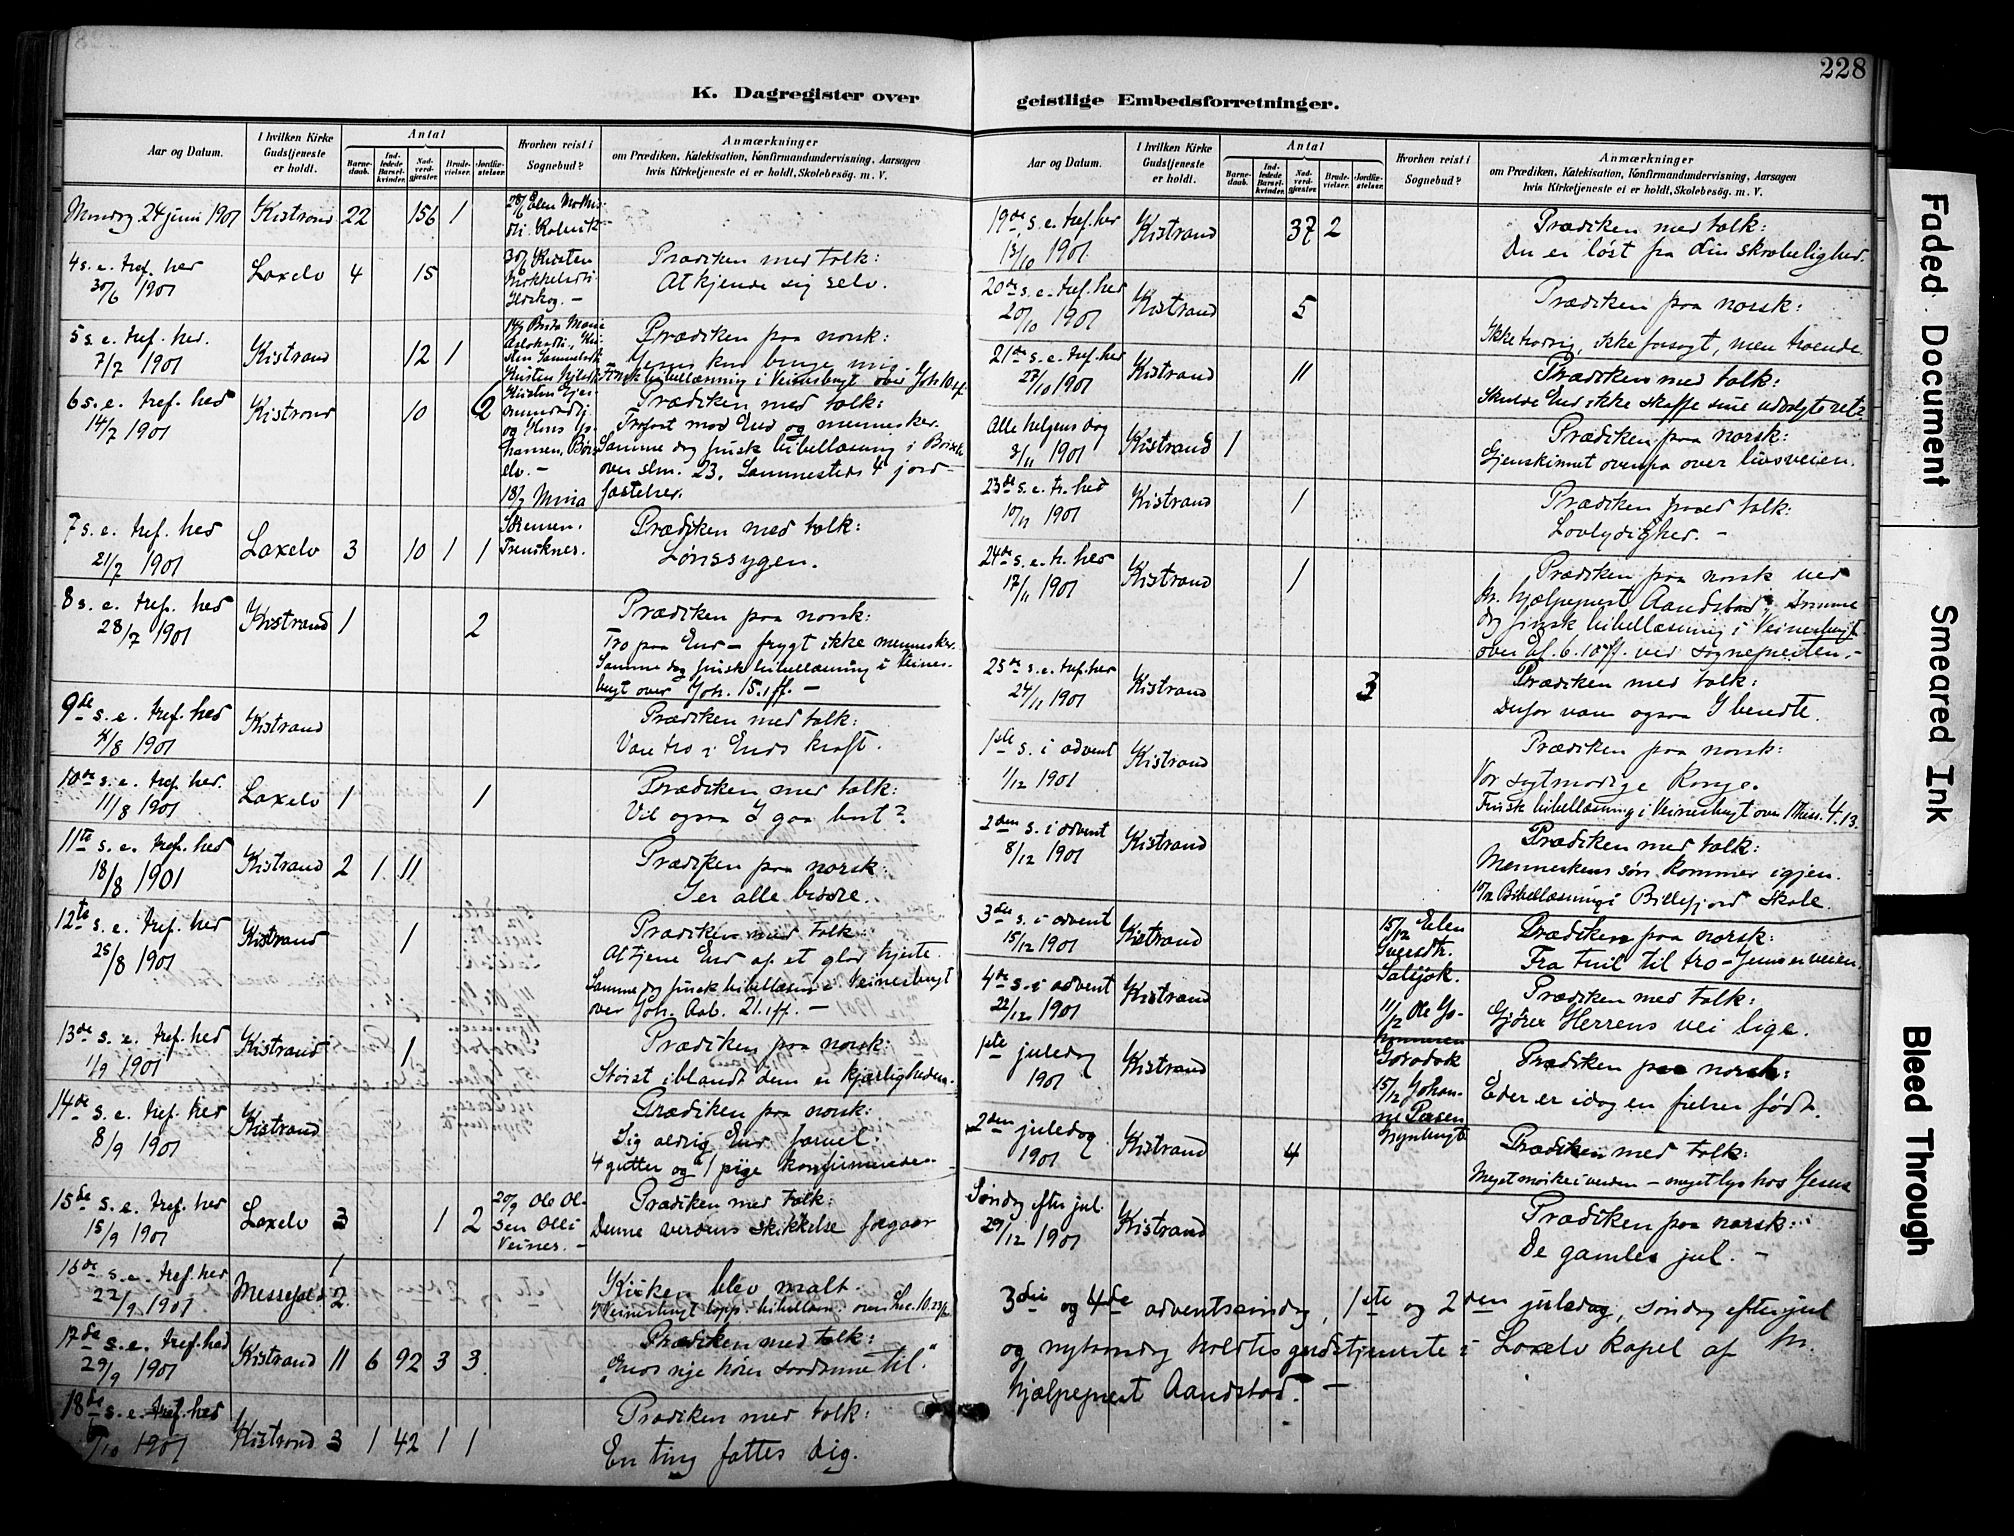 228
K. Dagregister over
geistlige Embedsforretninger.
Aar og Datum.
I hvilken Kirke Gudstjeneste er holdt.
Antal
Barnedaab.
Indledede Barselkvinder.
Nadverdgjester.
Brudevielser.
Jordfæstelser.
Hvorhen reist i Sognebud?
Anmærkninger
om Prædiken, Katekisation, Konfirmandundervisning, Aarsagen
hvis Kirketjeneste ei er holdt, Skolebesøg. m. V.
Mandag 24 juni 1901 Kistrand 22 156 1
4 s. e. tref. hed 30/6 1901 Laxelv 4 15
Prædiken med tolk:
At kjende sig selv.
5 s. e. tref. hed. 7/7 1901 Kistrand 12 1
Prædiken paa norsk:
6 s. e. tref. hed 14/7 1901 Kistrand 10 2
Prædiken med tolk:
Trofast mod Gud og mennesker.
Samme dag finsk bibellæsning i Børselv
over slm. 23. Sammesteds 4 jord-
fæstelser.
18/7 Mina
7 s. e. tref. hed 21/7 1901 Laxelv 3 10 1 1
Prædiken med tolk:
Lønssygen.
8 s. e. tref. hed 28/7 1901 Kistrand 1 2
Prædiken paa norsk:
Tro paa Gud – frygt ikke mennesker.
Samme dag finsk bibellæsning i Veines-
bugt over Joh. 15.1ff. –
9de s. e. tref. hed 4/8 1901 Kistrand
Prædiken med tolk:
Vare tro i Guds kraft.
10de s. e. tref. hed. 11/8 1901 Laxelv 1 1
Prædiken med tolk:
Vil ogsaa I gaa bort?
11te s. e. tref. hed 18/8 1901 Kistrand 2 1 11
Prædiken paa norsk:
I er alle brødre.
12te s. e. tref. hed 25/8 1901 Kistrand 1
Prædiken med tolk:
At tjene Gud af et glad hjerte.
Samme dag finsk bibellæsn. i Veinesbugt
over Joh. Aab. 21.1ff. –
13de s. e. tref. hed 1/9 1901 Kistrand 1
Prædiken paa norsk:
Størst iblandt dem er kjærligheden.
14de s. e. tref. hed 8/9 1901 Kistrand
Prædiken paa norsk:
Sig aldrig Gud farvel.
4 gutter og 1 pige konfirmerede.
15de s. e. tref. hed 15/9 1901 Laxelv 3 1 2
20/9 Ole Olsen Olli Veines. –
Prædiken med tolk:
Denne verdens skikkelse forgaar
16de s. e. tref. hed 22/9 1901 1 2
Kirken blev malt.
17de s. e. tref. hed 29/9 1901 Kistrand 11 6 92 3 3
Prædiken med tolk:
18de s. e. tref. hed 1901 Kistrand 3 1 42 1 1
Prædiken med tolk:
En ting fattes dig.
Aar og Datum.
I hvilken Kirke Gudstjeneste er holdt.
Antal
Barnedaab.
Indledede Barselkvinder.
Nadverdgjester.
Brudevielser.
Jordfæstelser.
Hvorhen reist i Sognebud?
Anmærkninger
om Prædiken, Katekisation, Konfirmandundervisning, Aarsagen
hvis Kirketjeneste ei er holdt, Skolebesøg. m. V.
19de s. e. tref. hed 13/10 1901 Kistrand 37 2
Prædiken med tolk:
Du er løst fra din skrøbelighed.
20de s. e. tref. hed 20/10 1901 Kistrand 5
Prædiken paa norsk:
Ikke hovrig, ikke forsagt, men troende
21de s. e. tref. hed 27/10 1901 Kistrand 11
Prædiken med tolk:
Skulde Gud ikke skaffe sine udvalgte ret?
Alle helgens dag 3/11 1901 Kistrand 1
Prædiken paa norsk:
Gjenskinnet ovenfra over livsveien.
23de s. e. tr. hed 10/11 1901 Kistrand 1
Prædiken med tolk:
Lovlydighed. –
24de s. e. tr. hed 17/11 1901 Kistrand 1
Prædiken paa norsk ved
hr. hjælpeprest Aandstad. Samme
dag finsk bibellæsning i Veinesbugt
over Ef. 6.10ff. ved sognepresten. –
25de s. e. tref. hed 24/11 1901 Kistrand 3
Prædiken med tolk:
Derfor værer ogsaa I beredte.
1ste s. i advent 1/12 1901 Kistrand
Prædiken paa norsk:
Vor sagtmodige Konge.
Finsk bibellæsning i Veinesbugt over 1 Thess. 4.13.
2den s. i advent 8/12 1901 Kistrand
Prædiken med tolk:
Menneskens søn kommer igjen.
10/12 Bibellæsning i Billefjord Skole.
3die s. i advent 15/12 1901 Kistrand
15/12 Elen
Prædiken paa norsk:
Fra tvil til tro – Jesus er veien.
4de s. i advent 22/12 1901 Kistrand
Prædiken med tolk:
Gjører Herrens vei lige.
1ste juledag 1901 Kistrand
Prædiken paa norsk:
Eder er idag en frelser født.
15/12 Johan-
2den juledag 1901 Kistrand 4
Prædiken med tolk:
Meget mørke i verden – meget lys hos Jesus
Søndag efter jul. 29/12 1901 Kistrand
Prædiken paa norsk:
De gamles jul. –
3die og 4de adventssøndag, 1ste og 2den juledag, søndag efter jul
og nytaarsdag holdtes gudstjeneste i Laxelv kapel af hr.
hjælpeprest Aandstad. –
Faded Document
Smeared Ink
Bleed Through